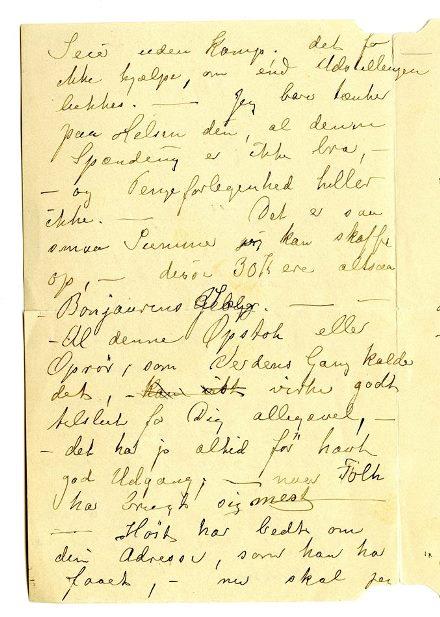 Seir uden Kamp. det faar
ikke hjælpe, om end Udstillingen
lukkes. — Jeg bare tænker
paa Helsen din, al denne
Spænding er ikke bra, —
— og Pengeforlegenhed heller
ikke. — Det er saa
smaa Summer jeg kan skaffe
op, — disse 30 K ere altsaa
Bonjourens
— Al denne Opstoh eller
Oprør, som Verdens Gang kalder
det, — kan ikke virke godt
tilslut for Dig allegavel, —
— det har jo altid før havt
god Udgang; — naar Folk
har bragt sig mest
— Høst har bedt om
din Adresse, som han har
faaet, — nu skal jeg